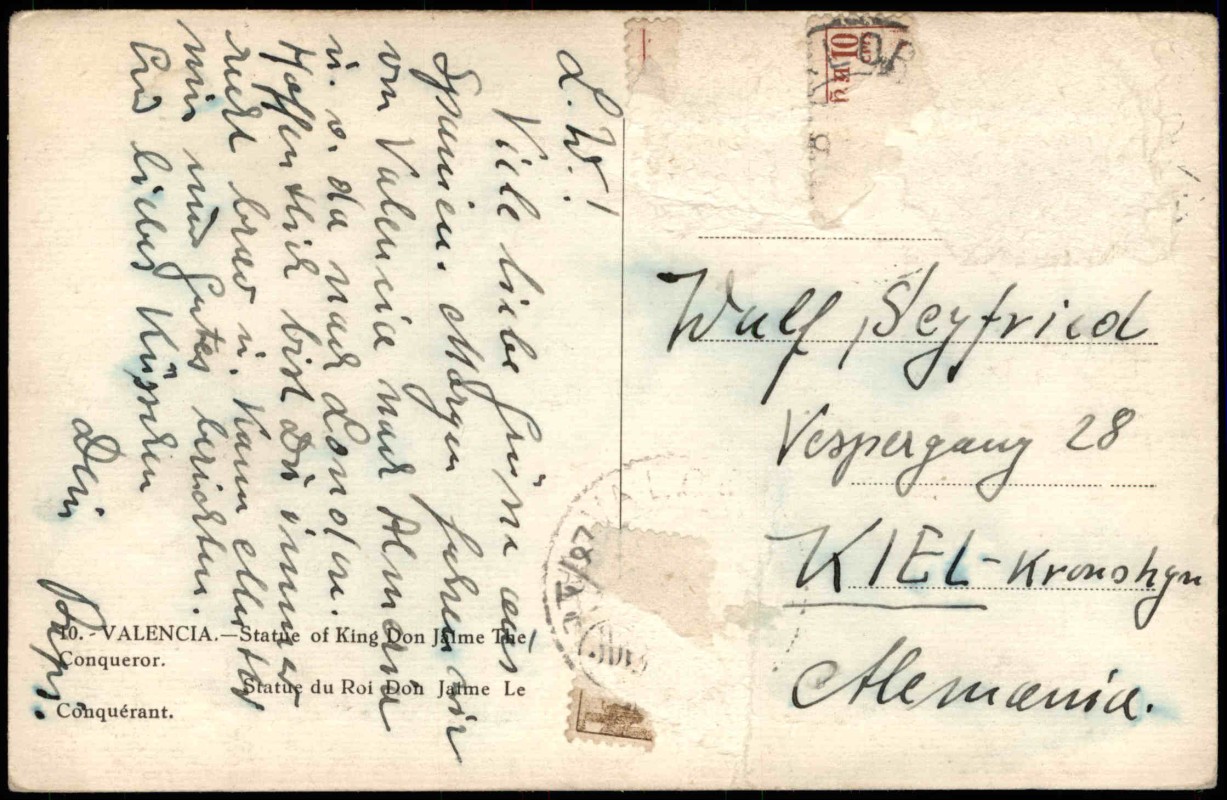 L. W.!
Viele liebe Grüße aus
Spanien. Morgen fahren wir
von Valencia nach Almeria
u. v. da nach London.
Hoffentlich bist Du immer
recht brav u. kann Mutter
mir nur Gutes berichten.
Ein liebes Küsschen
Dein
Papi.
10. - VALENCIA.—Statue of King Don Jaime The
Conqueror.
Statue du Roi Don Jaime Le
Conquérant.
10
Wulf Seyfried
Vespergang 28
KIEL-Kronshgn
Alemania.